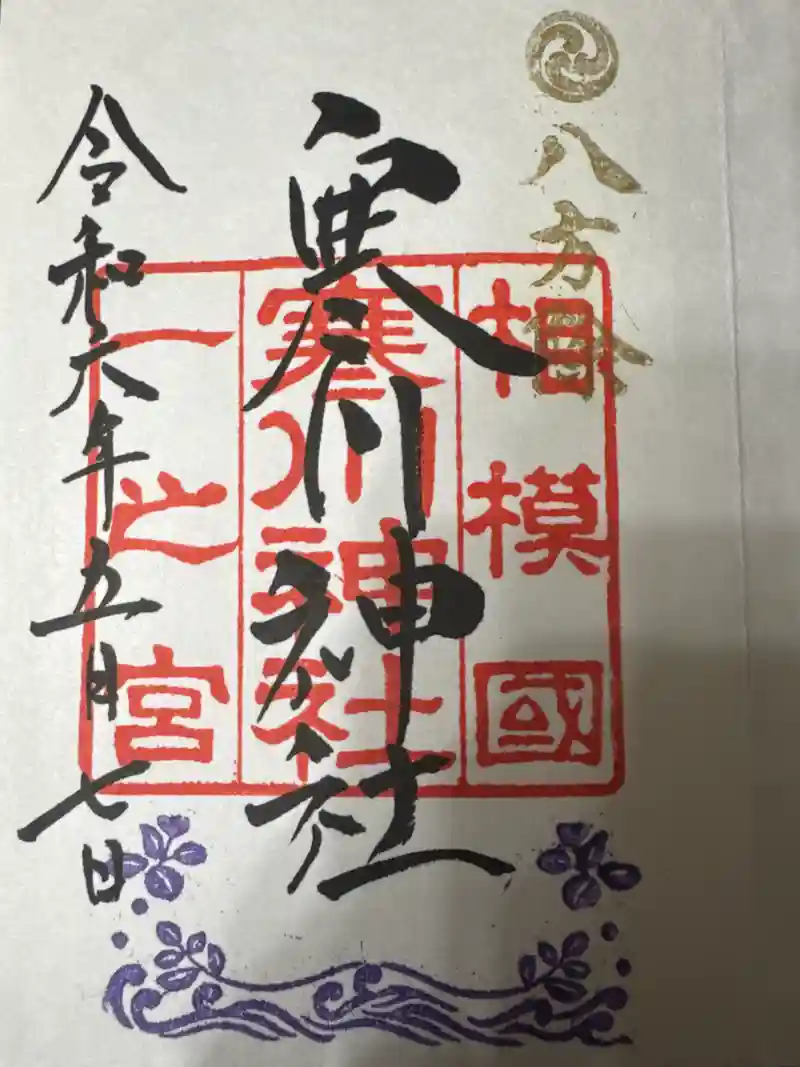 八方除
相模國
寒川神社
一之宮
寒川神社
令和六年五月七日